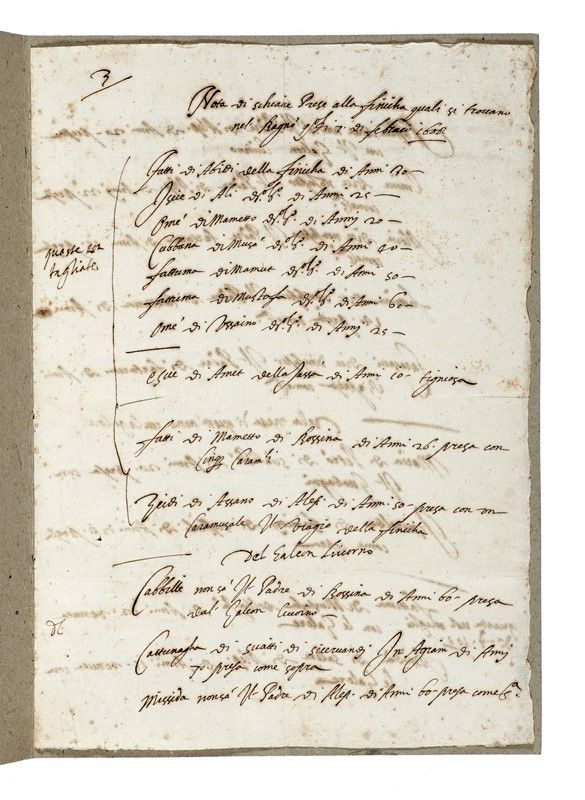 3
Nota di schiave Prese alla finicha quali si trovano
nel Bagno di febraio 1608
fatti di Abidi della finicha di Anni 30
Isce di Ali di Anni 25
Omé di Mametto di Annj 20
Cubbana di Musa di Anni 40
fattuma di Mamut di Anni 50
fattima di Mustafa di Anni 60
Omé di Ussaino di Annj 25
queste son
tagliate
di Amet della di Anni 60 tignosa
fatti di Mametto di Rossina di Anni 26 presa con
Cinq Caram.li
Zeidi di Assano di Alep. di Anni 50 presa con un
Caramusale Il Viagio della finicha
Del Galeon Livorno
Cabbille non sa Il Padre di Rossina di Anni 60 presa
dal Galeon Livorno
di In di Annj
70 presa come sopra
Missida non sa Il Padre di Alep. di Anni 60 presa come s.a